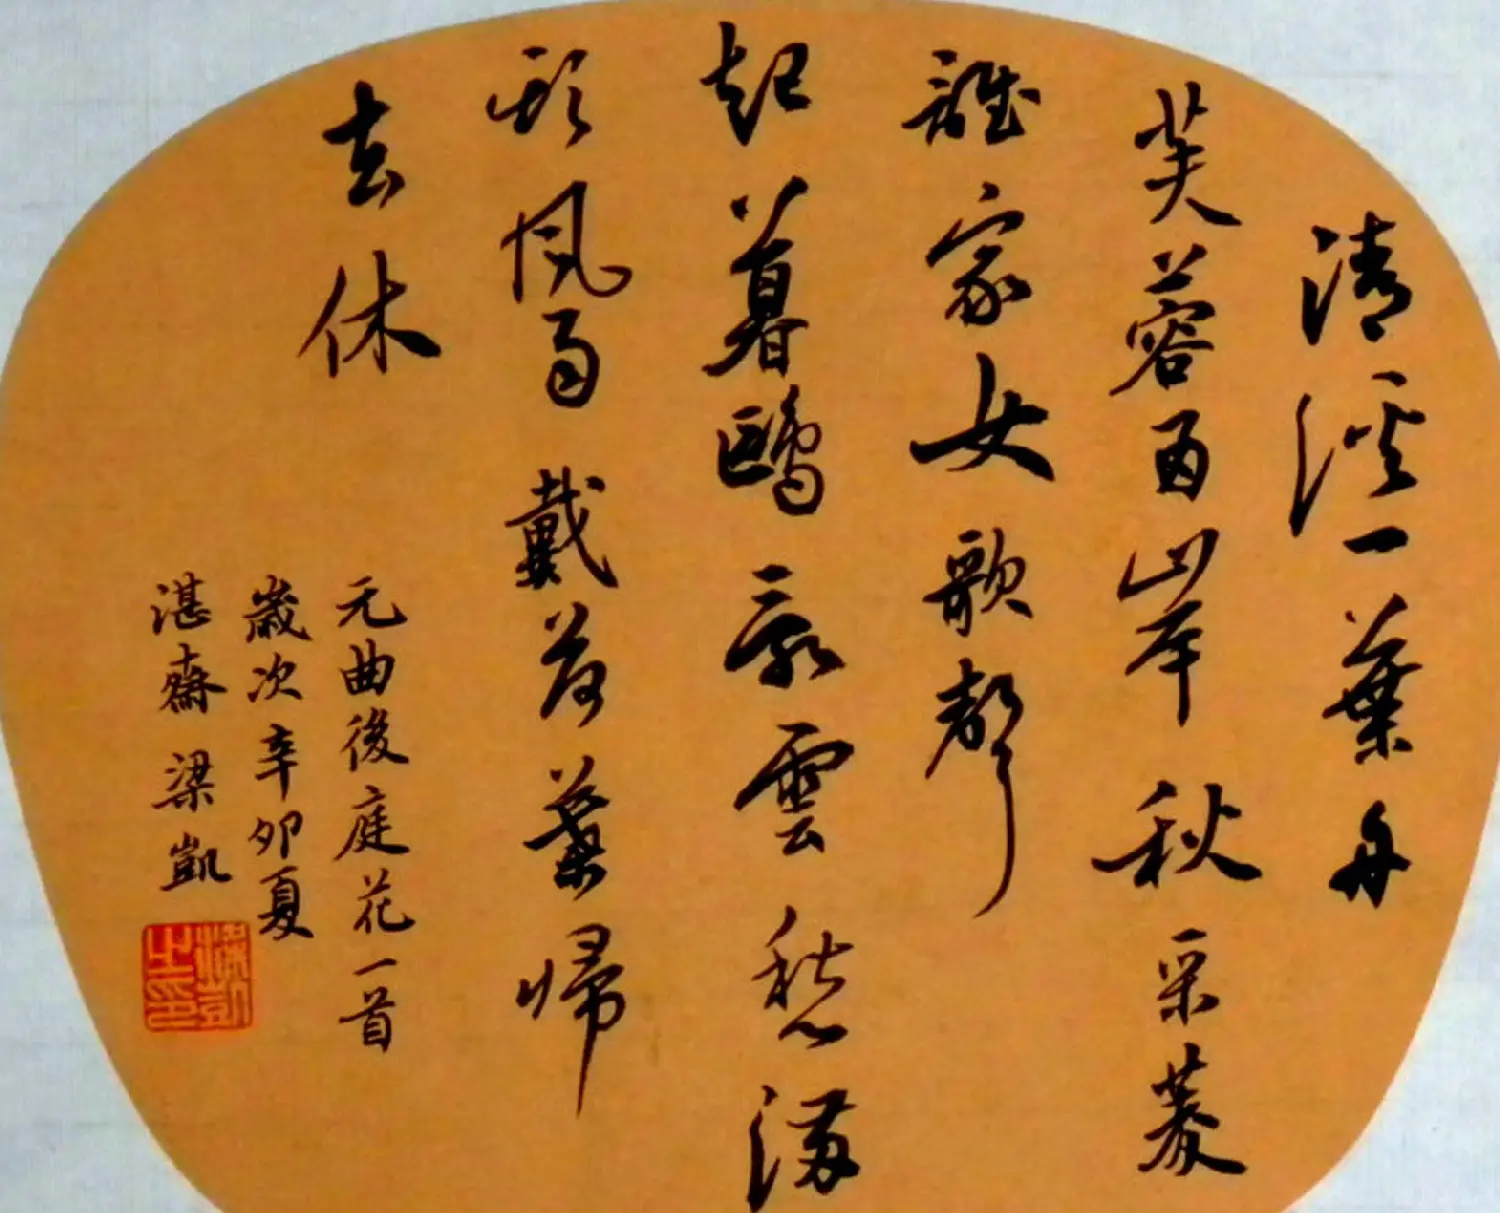 清溪一葉舟
芙蓉兩岸秋采菱
誰家女歌聲
起暮鷗亂雲愁滿
頭風雨戴荷葉歸
去休
元曲後庭花一首
歲次辛卯夏
湛齋梁凱
梁凱之印